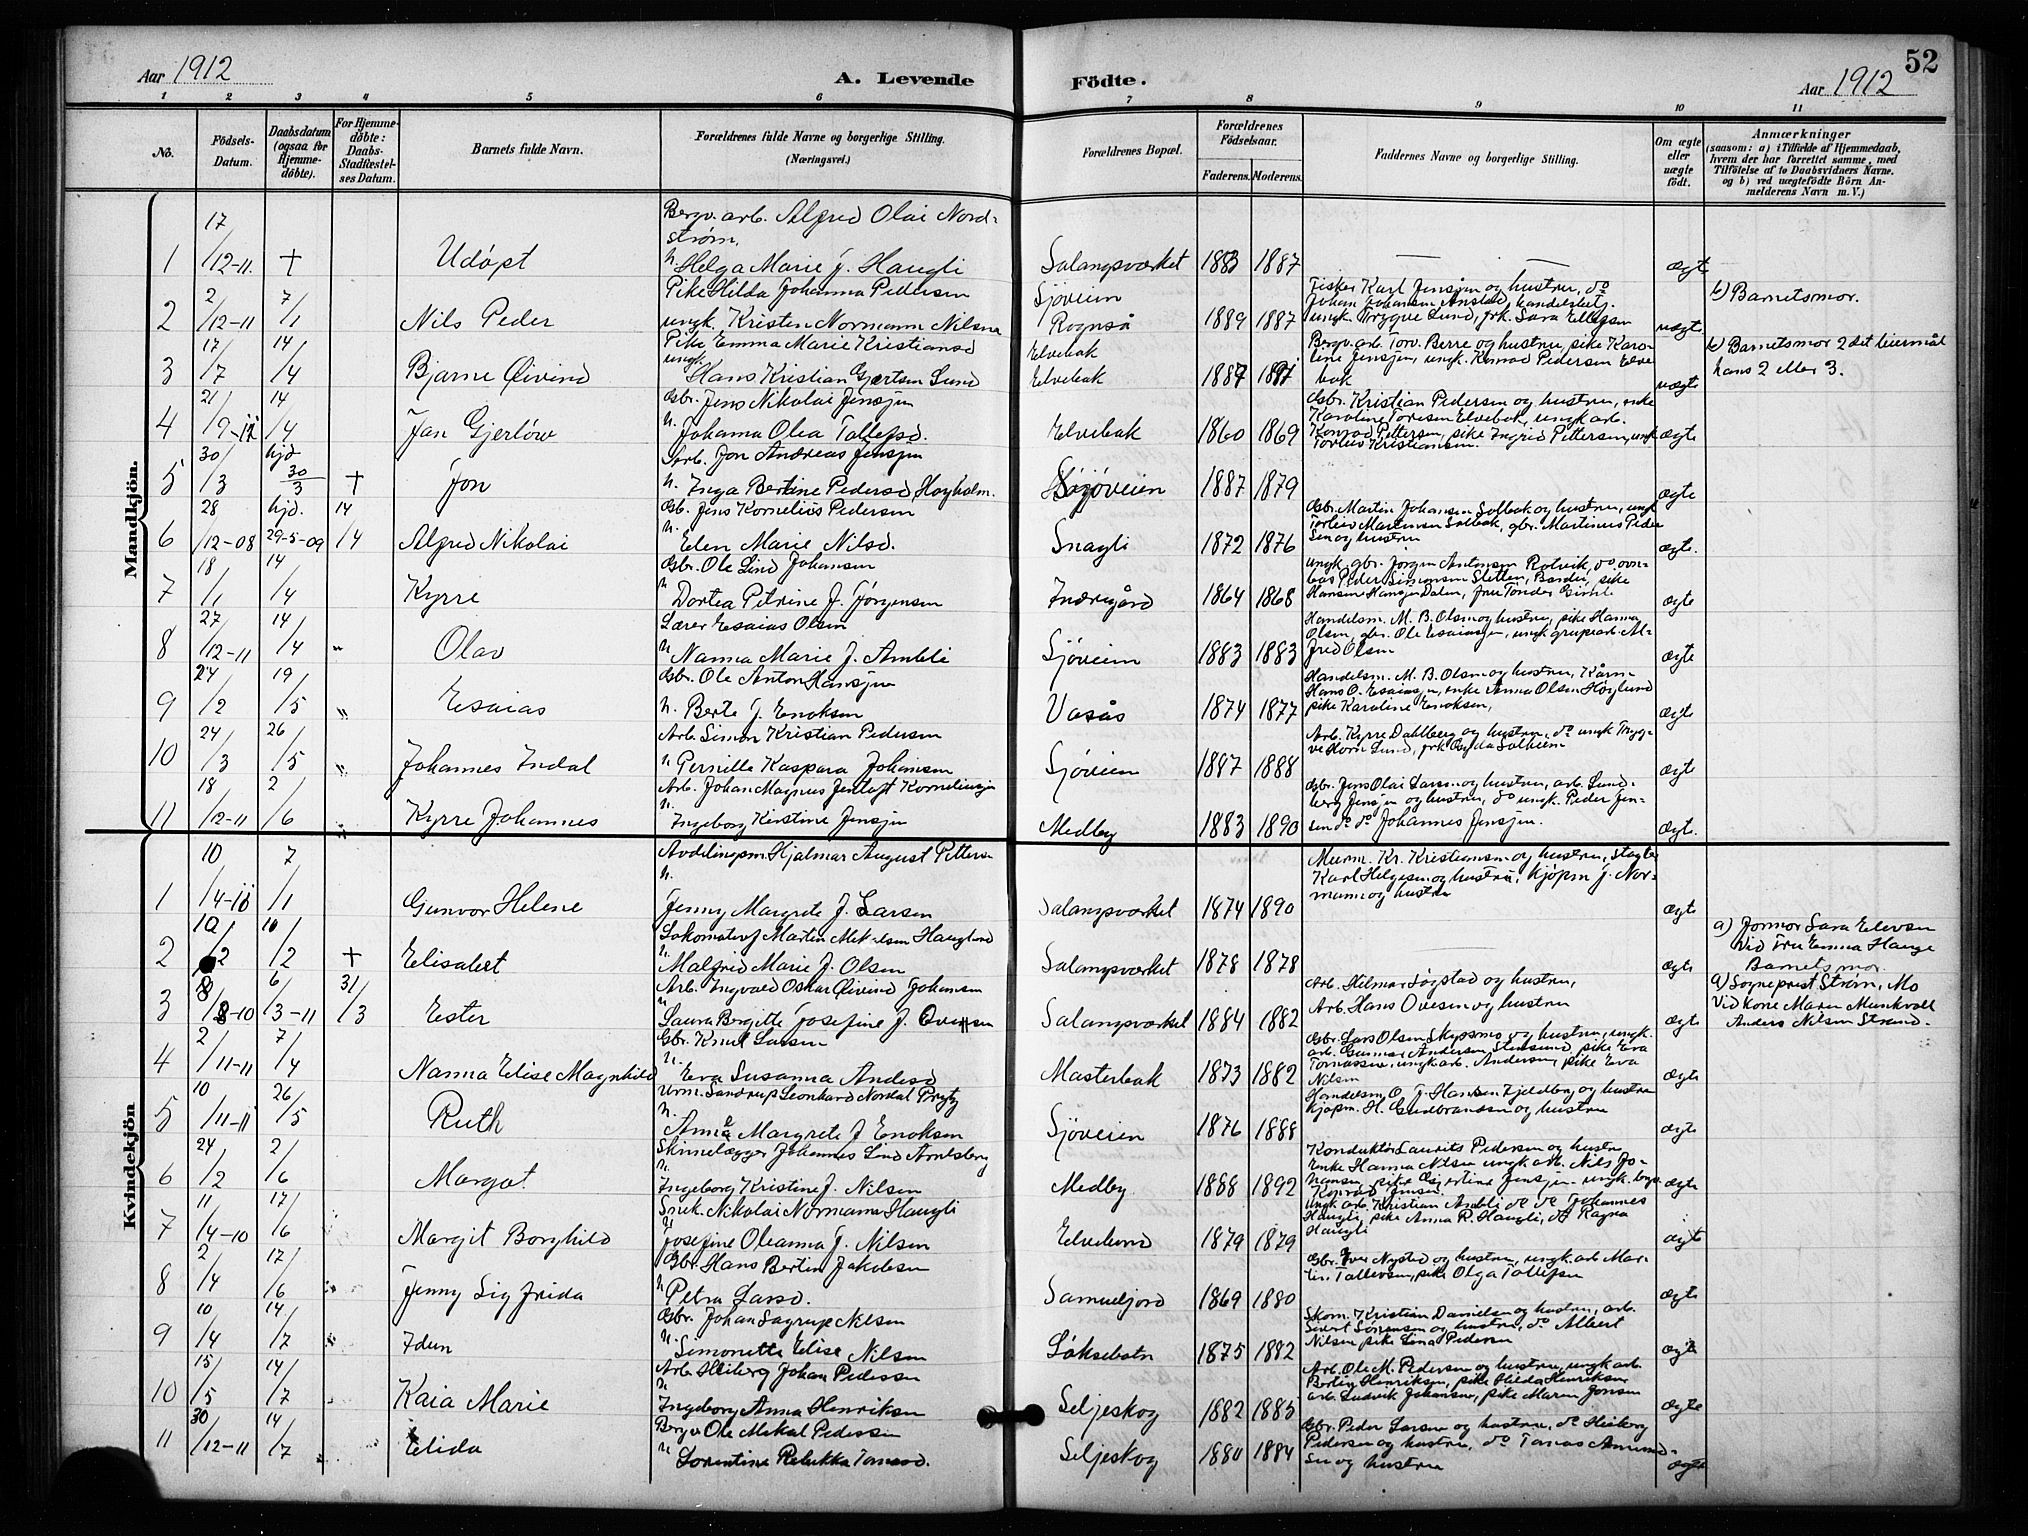 52
Aar 1912
A. Levende
Födte.
Aar 1912
1 2 3 4 5 6 7 8 9 10 11
No.
Födsels-Datum.
Daabsdatum (ogsaa for Hjemme-døbte).
For Hjemme-døbte: Daabs-Stadfæstel-ses Datum.
Barnets fulde Navn.
Forældrenes fulde Navne og borgerlige Stilling. (Næringsvei.)
Forældrenes Bopæl.
Forældrenes Födselsaar.
Faderens. Moderens.
Faddernes Navne og borgerlige Stilling.
Om ægte eller uægte födt.
Anmærkninger
(saasom: a) i Tilfælde af Hjemmedaab, hvem der har forrettet samme, med Tilföielse af to Daabsvidners Navne. og b) ved uægtefödte Börn An-melderens Navn m. V.)
Mandkjön.
1 17/12-11. † Udøpt
Bergv. arb. Alfred Olai Nord-
strøm,
h. Helga Marie f. Haugli
Salangsværket 1883 1887 — — ægte
2 2/12-11 7/1 Nils Peder
Pike Hilda Johanna Pedersen
ungk. Kristen Normann Nilsen
Sjøveien
Rognså 1889 1887
Fisker Karl Jensen og hustru, do
Johan Johansen Anstad, handelsbetj.
ungk. Trygve Lund, frk. Sara Ellefsen
uægte
b) Barnetsmor.
3 17/7 14/4 Bjarne Øivind
Pike Emma Marie Kristiansd
ungk.
Hans Kristian Gjertsen Lund
Elvebak
Elvebak 1887 1891
Bergv. arb. Torv. Berre og hustru, pike Karo-
line Jensen, ungk. Konrad Pedersen Elve
bak
uægte
b) Barnetsmor 2det leiermål
hans 2 eller 3.
4 21/9-11 14/4 Jan Gjerløw
Gbr. Jens Nikolai Jensen
h. Johanna Olea Tollefsd.
Elvebak 1860 1869
Gbr. Kristian Pedersen og hustru, enke
Karoline Toresen Elvebak, ungk arb.
Konrad Pettersen, pike Ingrid Pettersen, ungk
Torleiv Kristiansen.
ægte
5 30/3 hjd 30/3 † Jon
Arb. Jon Andreas Jensen
h. Inga Bertine Pedersd Høgholm.
Sjøveien 1887 1879 ægte
6 28/12-08 hjd. 29-5-09 14/4 Alfred Nikolai
Gbr. Jens Kornelius Pedersen
h. Elen Marie Nilsd.
Snagli 1872 1876
Gbr. Martin Johansen Solbak og hustru, ungk
Torleiv Martinsen Solbak, gbr. Martinus Peder
sen og hustru
ægte.
7 18/1 14/4 Kyrre
Gbr. Ole Lind Johansen
h. Dortea Petrine f. Jørgensen
Indregård 1864 1868
ungk. gbr. Jørgen Antonsen Rotvik, do
Peder Simonsen Sletten, Bardu, pike
Hansine Hansen Dalen, fru Tonder
ægte
8 27/12-11 14/4 " Olav
Lærer Esaias Olsen
h. Nanna Marie f. Ambli
Sjøveien 1883 1883
Handelsm. M. B. Olsen og hustru, pike Hanna
Olsen, gbr. Ole Esaiassen, ungk grupearb. Al-
fred Olsen
ægte
9 24/2 19/5 " Esaias
Gbr. Ole Anton Hansen
h. Berte f. Enoksen
Vasås 1874 1877
Handelsm. M. B. Olsen og hustru,
Hans O. Esaiassen, enke Anna Olsen Høglund
pike Karoline Enoksen,
ægte
10 24/3 26/5 " Johannes Indal
Arb. Simon Kristian Pedersen
h. Pernille Kaspara Johansen
Sjøveien 1887 1888
Arb. Kyrre Dahlberg og hustru, do ungk Tryg-
ve Horn Lund, frk Solheim
ægte
11 18/12-11 2/6 " Kyrre Johannes
Arb. Johan Magnus Jentoft Korneliussen
h. Ingeborg Kirstine Jensen
Medby 1883 1890
Gbr. Jens Olai Larsen og hustru, arb. Lund-
berg Jensen og hustru, do ungk. Peder Jen-
sen do do Johannes Jensen.
ægte.
Kvindekjön
1 10/4-11 7/1 Gunvor Helene
Avdelingsm. Hjalmar August Petterse
h.
Jenny Margrete f. Larsen
Salangsværket 1874 1890
Murm. Kr. Kristiansen og hustru,
Karl Helgesen og hustru, kjøpm J. Nor-
mann og hustru
ægte
2 10/2 10/2 † Elisabet
Lokomotivf Martin Mikalsen Hauglund
h. Malfrid Marie f. Olsen
Salangsværket 1878 1878 ægte
a) Jormor Sara Elevsen
Vid Fru Emma Hauge
Barnetsmor.
3 8/8-10 6/3-11 31/3 Ester
Arb. Ingvald Oskar Øivind Johansen
h. Laura Bergitte Josefine f. Ovesen
Salangsværket 1884 1882
Arb. Hilmar Løgstad og hustru,
Arb. Hans Ovesen og hustru
ægte
a) Sogneprest Strøm, Mo
Vid Kone Maren Munkvoll
Anders Nilsen Strand.
4 2/11-11 7/4 Nanna Elise Magnhild
Gbr. Knut Larsen
h. Eva Susanna Andersd
Masterbak 1873 1882
Gbr. Lars Olsen Skypsmo og hustru, ungk.
arb. Gunnar Andersen Stensund, pike Eva
Tomassen, ungk arb. Andersen, pike Eva
Nilsen
ægte
5 10/11-11 26/5 Ruth
Urm. Sandrup Leonhard Nordal Brygg
h. Anna Margrete f Enoksen
Sjøveien 1876 1888
Handelsm O. J. Hansen Fjeldberg og hustru
kjøpm. H. Gudbrandsen og hustru
ægte
6 24/2 2/6 Margot
Skinnelægger Johannes Lind Arntsberg
h. Ingeborg Kristine f. Nilsen
Medby 1888 1892
Konduktør Laurits Pedersen og hustru
Enke Hanna Nilsen ungk arb. Nils Jo-
hansen, pike Jensen
Konrad Jensen
ægte
7 11/4-10 17/6 Margit Borghild
Snek. Nikolai Normann Haugli
h. Josefine Oleanna f. Nilsen
Elvelund 1879 1879
ungk. arb. Kristian Ambli do do Johannes
Haugli, pike Anna R. Haugli, do Ragna
Haugli
ægte
8 2/4 17/6 Jenny Sigfrida
Gbr. Hans Bertin Jakobsen
h. Petra Larsd.
Samuejord 1869 1880
Gbr Iver Nystad og hustru, ungk arb Mar-
tin Tollevsen, pike Olga Tollefsen
ægte
9 10/4 14/7 Idun
Gbr. Johan Sagrup Nilsen
h. Simonette Elise Nilsen
Løksebotn 1875 1882
Skom. Kristian Danielsen og hustru, arb.
Sivert Sørensen og hustru, do Albert
Nilsen pike Lina Pedersen
ægte
10 15/5 14/7 Kaia Marie
Arb. Heiberg Johan Pedersen
h. Ingeborg Anna Henriksen
Seljeskog 1882 1885
Arb. Ole M. Pedersen og hustru, ungk arb.
Bertin Henriksen, pike Hilda Henriksen
arb. Ludvik Johansen, pike Maren Jensen
ægte
11 30/12-11 14/7 Elida
Bergv Ole Mikal Pedersen
h. Lorentine Rebekka Tomasd.
Seljeskog 1880 1884
Gbr. Peder Larsen og hustru, do Heiberg
Pedersen og hustru, do Tomas Amund-
sen og hustru
ægte